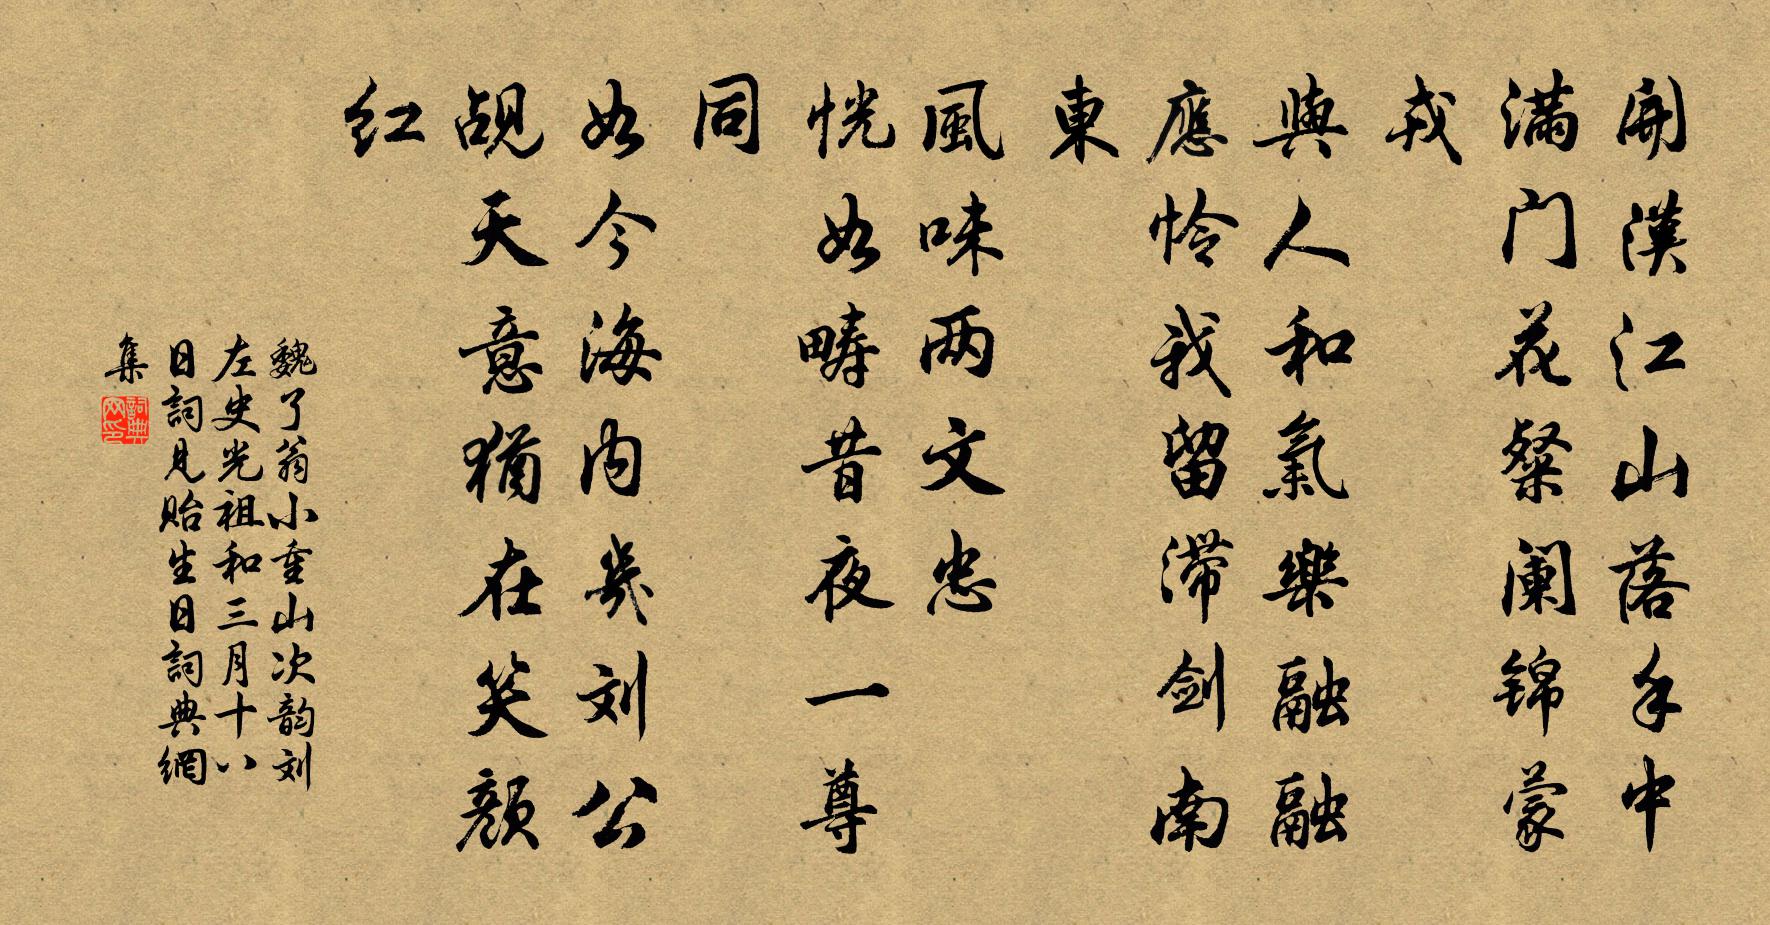 開漢江山落手中
滿门花粲阑锦蒙
戎
與人和氣樂融融
應怜我留滞剑南
東
風味两文忠
恍如畴昔夜一尊
同
如今海内幾刘公
觇天意猶在笑颜
红
魏了翁小重山次韵刘
左史光祖和三月十八
日詞見贻生日詞典網
集
詞典
网印